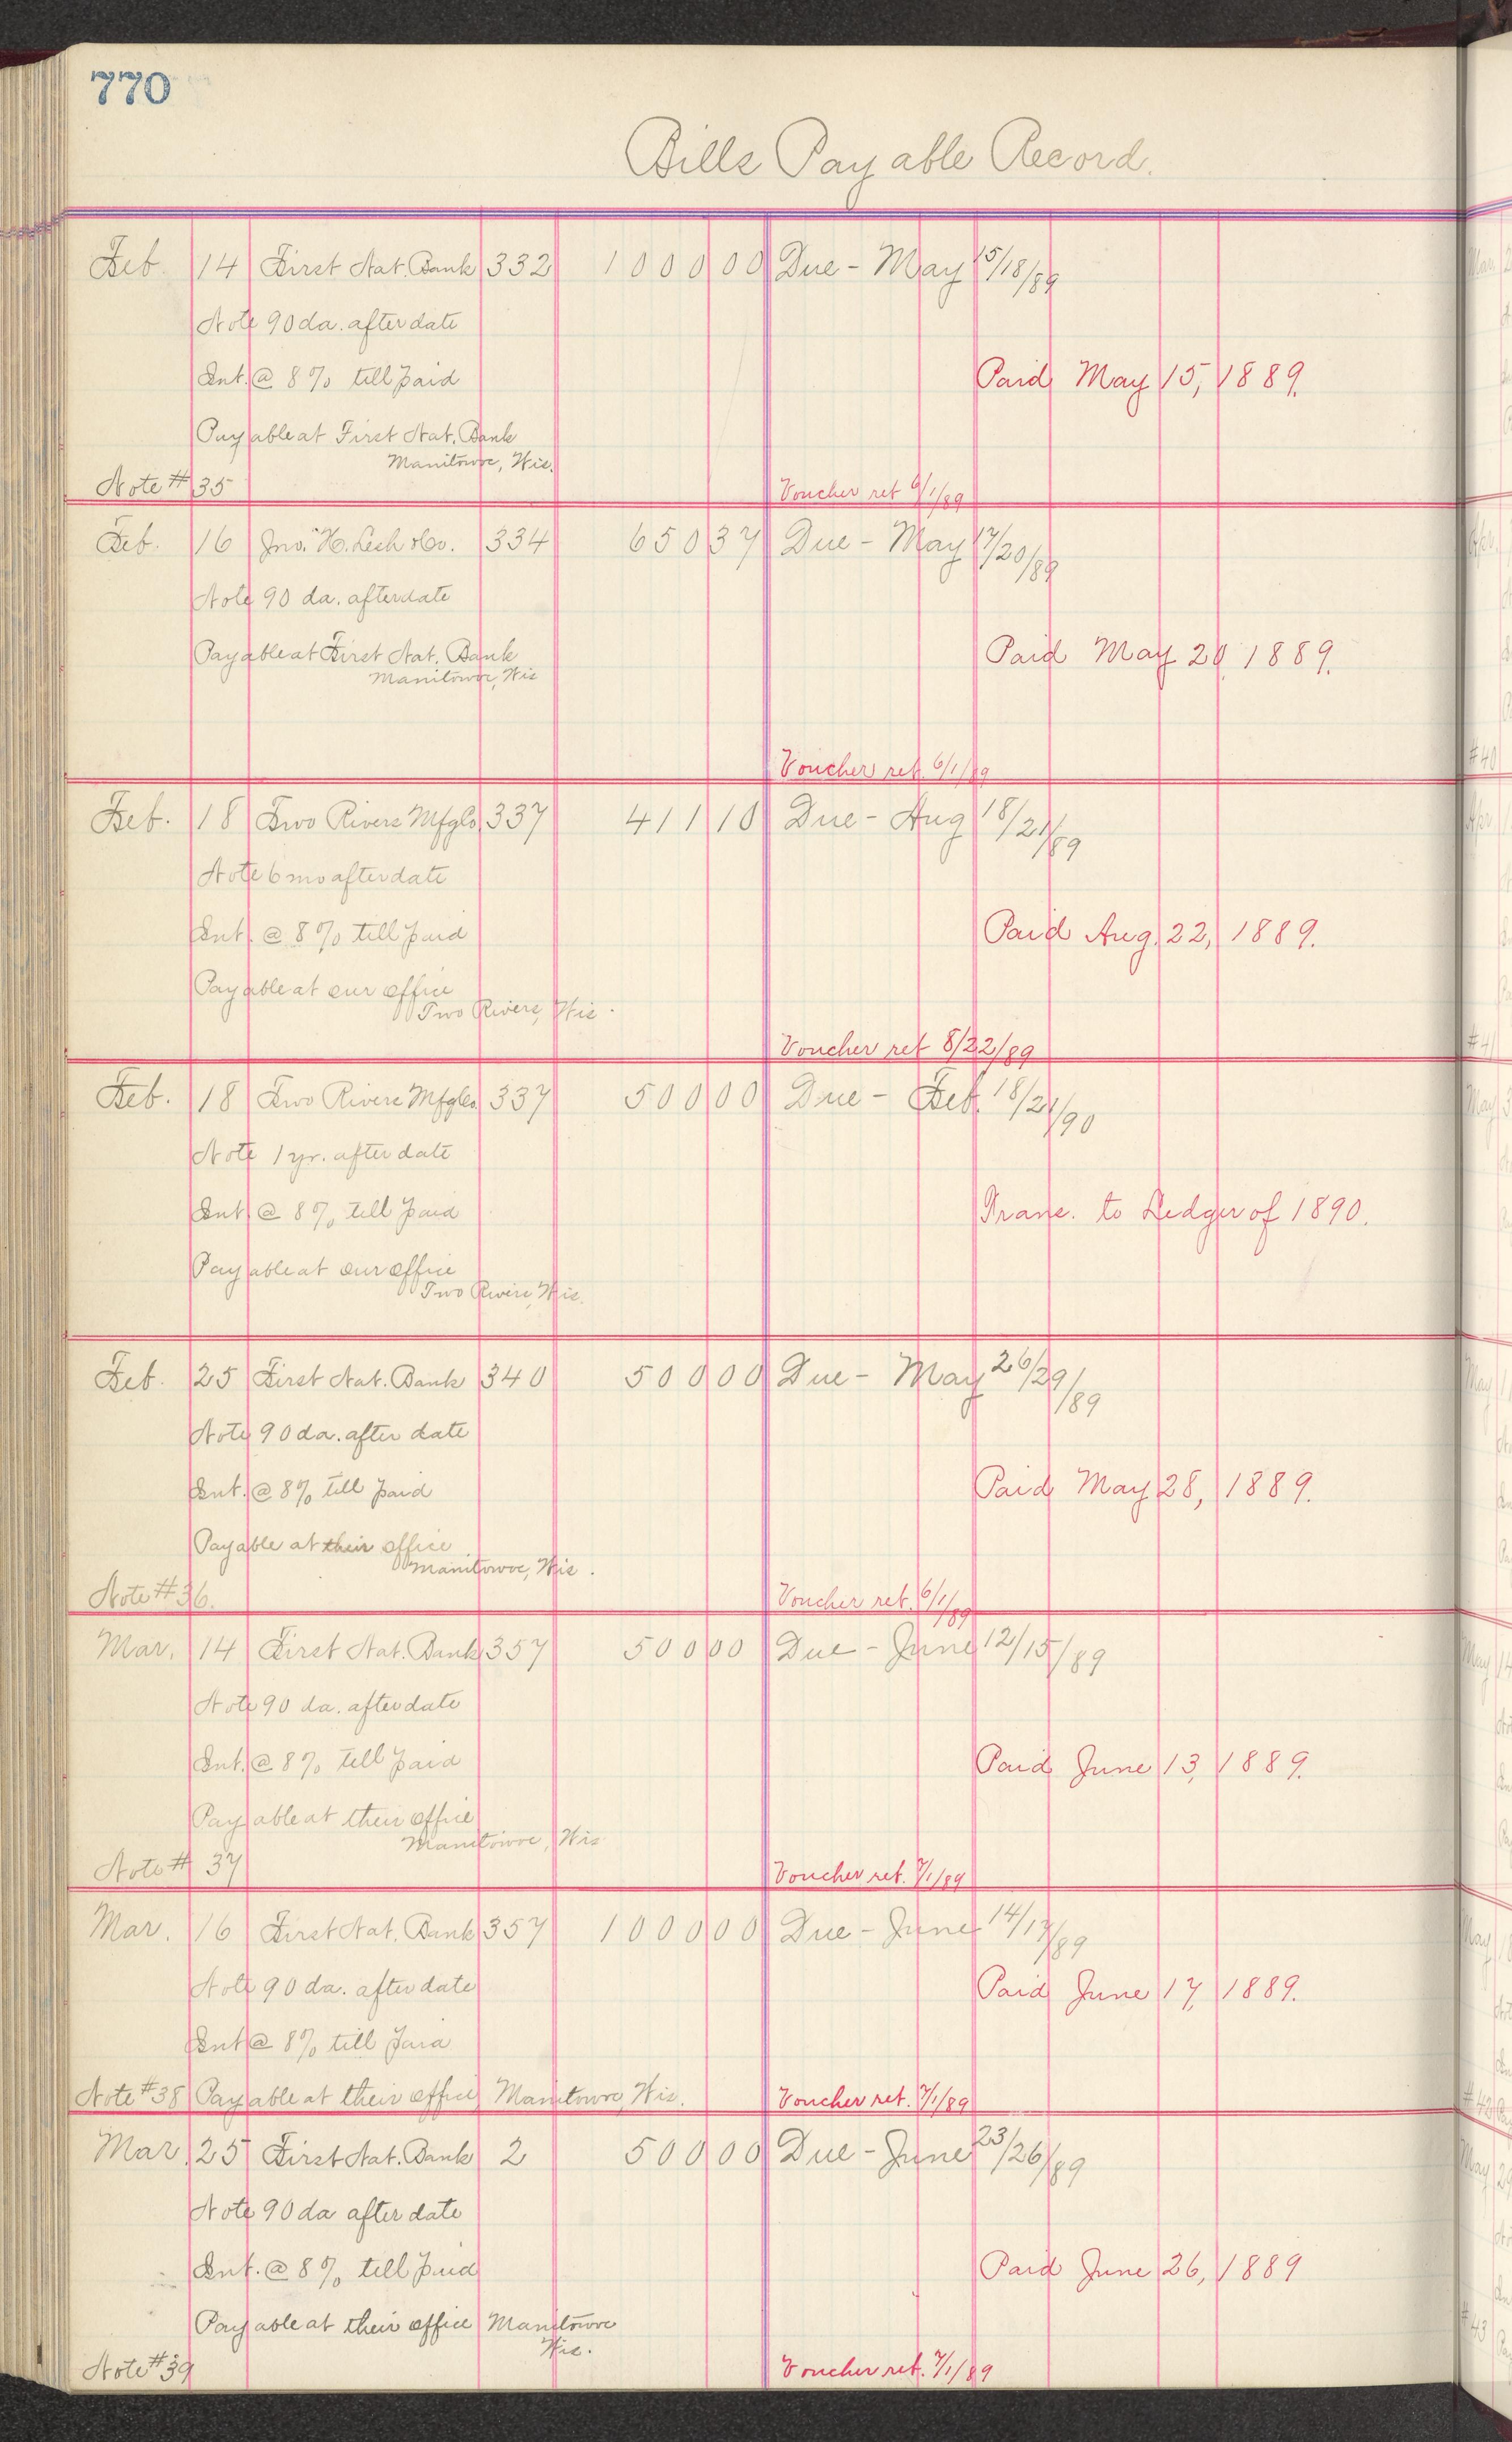 770
Bills Payable Record.
Feb. 14 First Nat. Bank 332 1000 00 Due - May 15/18/89
Note 90 da. after date
Int. @ 8% till paid Paid May 15, 1889.
Payable at First Nat. Bank
Manitowoc, Wis.
Note # 35 Voucher ret 6/1/89
Feb. 16 Jno. H. Lesh & Co. 334 650 37 Due - May 17/20/89
Note 90 da. after date
Payable at First Nat. Bank Paid May 20, 1889.
Manitowoc, Wis
Voucher ret. 6/1/89
Feb. 18 Two Rivers Mfg Co 337 411 10 Due - Aug 18/21/89
Note 6 mo after date
Int. @ 8% till paid Paid Aug. 22, 1889.
Payable at our office
Two Rivers, Wis.
Voucher ret 8/22/89
Feb. 18 Two Rivers Mfg Co 337 500 00 Due - Feb. 18/21/90
Note 1 yr. after date
Int @ 8% till paid Trans. to Ledger of 1890.
Payable at our office
Two Rivers, Wis.
Feb. 25 First Nat. Bank 340 500 00 Due - May 26/29/89
Note 90 da. after date
Int. @ 8% till paid Paid May 28, 1889.
Payable at their office
Manitowoc, Wis.
Note # 36. Voucher ret. 6/1/89
Mar. 14 First Nat. Bank 357 500 00 Due - June 12/15/89
Note 90 da. after date
Int. @ 8% till paid Paid June 13, 1889.
Payable at their office
Manitowoc, Wis
Note # 37 Voucher ret. 7/1/89
Mar. 16 First Nat. Bank 357 1000 00 Due - June 14/17/89
Note 90 da. after date Paid June 17, 1889.
Int @ 8% till paid
Note #38 Payable at their office Manitowoc, Wis. Voucher ret. 7/1/89
Mar. 25 First Nat. Bank 2 500 00 Due - June 23/26/89
Note 90 da after date
Int. @ 8% till paid Paid June 26, 1889
Payable at their office Manitowoc
Wis.
Note #39 Voucher ret. 7/1/89